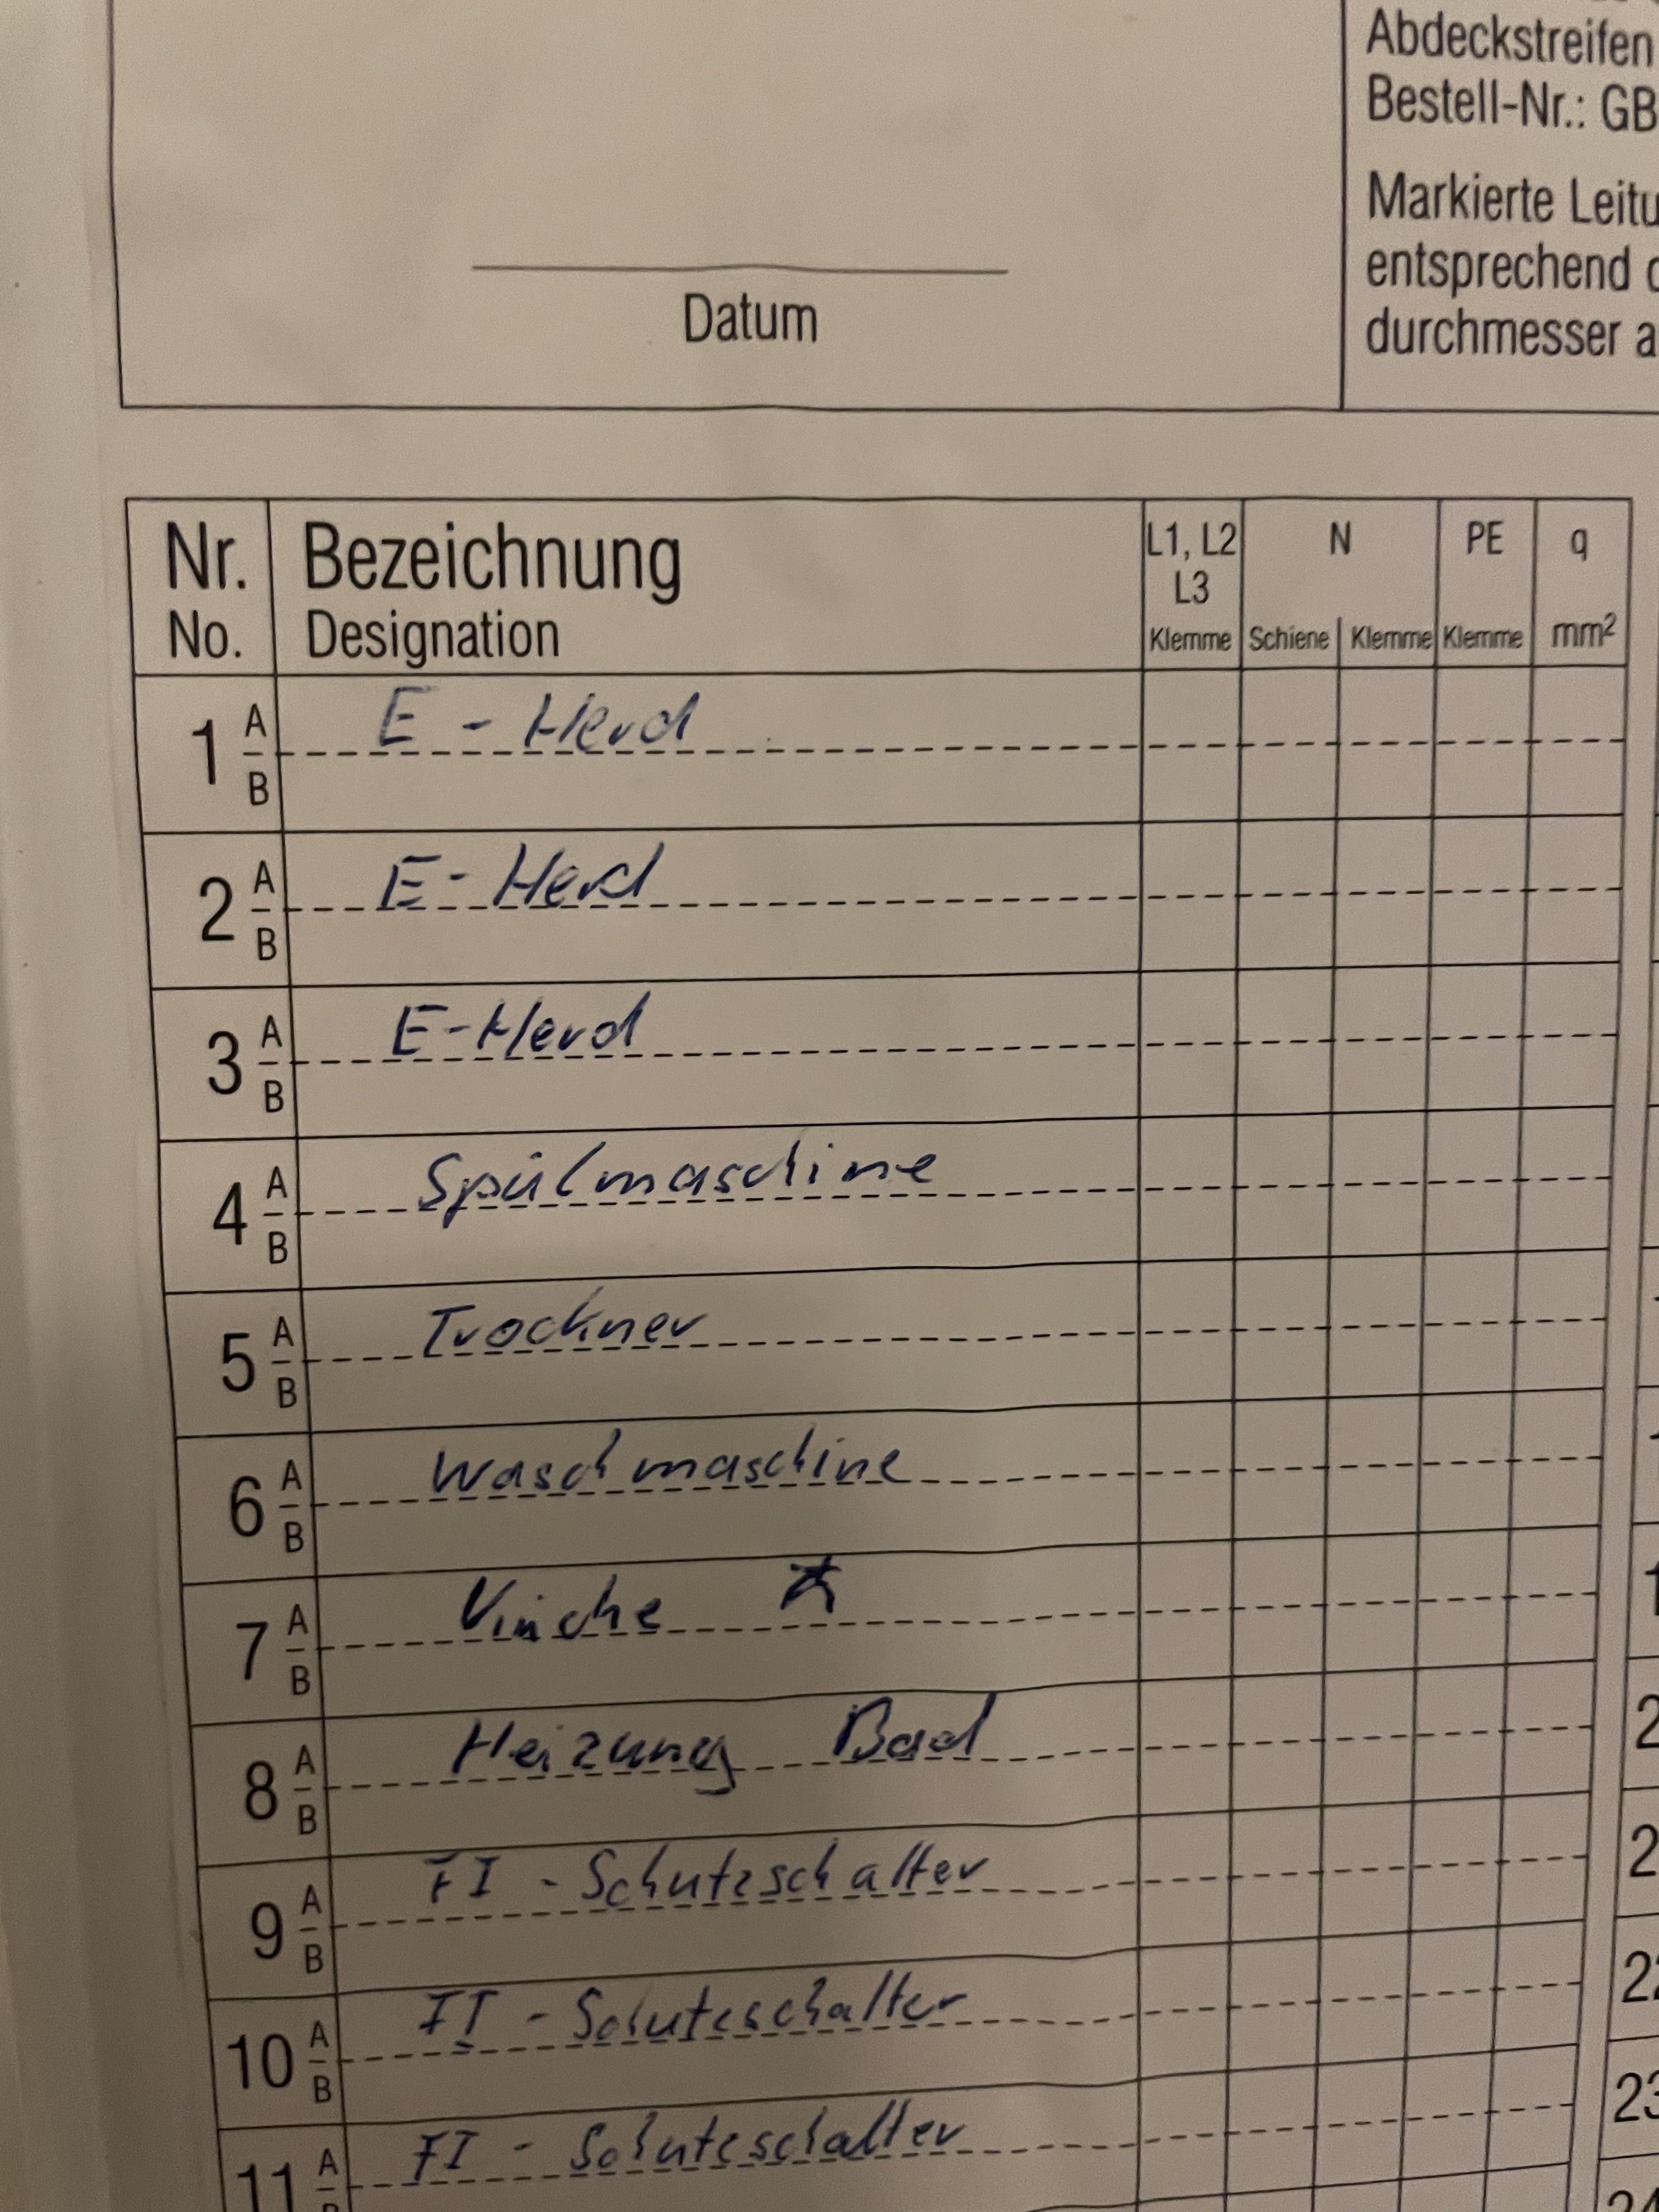 Abdeckstreifen
Bestell-Nr.: GB
Markierte Leitu
entsprechend
durchmesser a
Datum
Nr. Bezeichnung L1, L2 N PE q
L3
No. Designation Klemme Schiene Klemme Klemme mm²
1 A E - Herd
B
2 A E - Herd
B
3 A E-Herd
B
4 A Spülmaschine
B
5 A Trockner
B
6 A Waschmaschine
B
7 A
B
8 A Heizung Bad
B
9 A FI - Schutzschalter
B
10 A FI - Schutzschalter
B
11 A FI - Schutzschalter
22
23
24